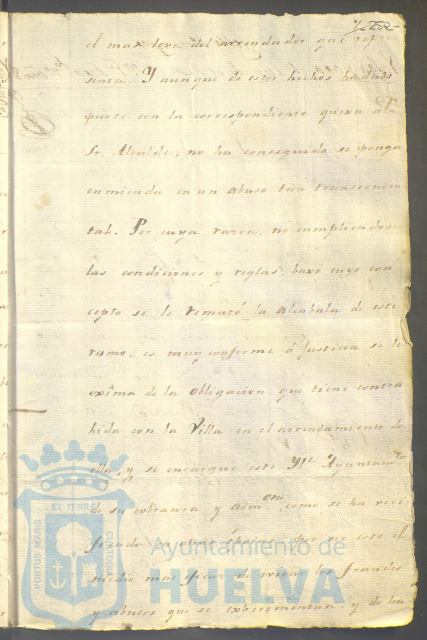 el mas leve del arrendador que rep
senta. Y aunque de estos hechos ha dado
parte con la correspondiente quexa ala
Sr. Alcalde, no ha conseguido se ponga
enmienda en un abuso tan transcenden
tal. Por cuya razon, no cumpliendose
las condiciones y reglas, baxo cuyo con
cepto se le remató la Alcabala de este
ramo, es muy conforme á Justicia se le
exîma de la obligacion que tiene contra
hida con la Villa en el arrendamiento de
ella, y se encargue este Yl.e Ayuntam.to
de su cobranza y adm.on como se ha veri
ficado en otras épocas, por ser este el
medio mas de evitar los fraudes
y abusos que se experimentan, y de ha
PORTUS MARIS ET TERRÆ CUSTODIA
Ayuntamiento de
HUELVA